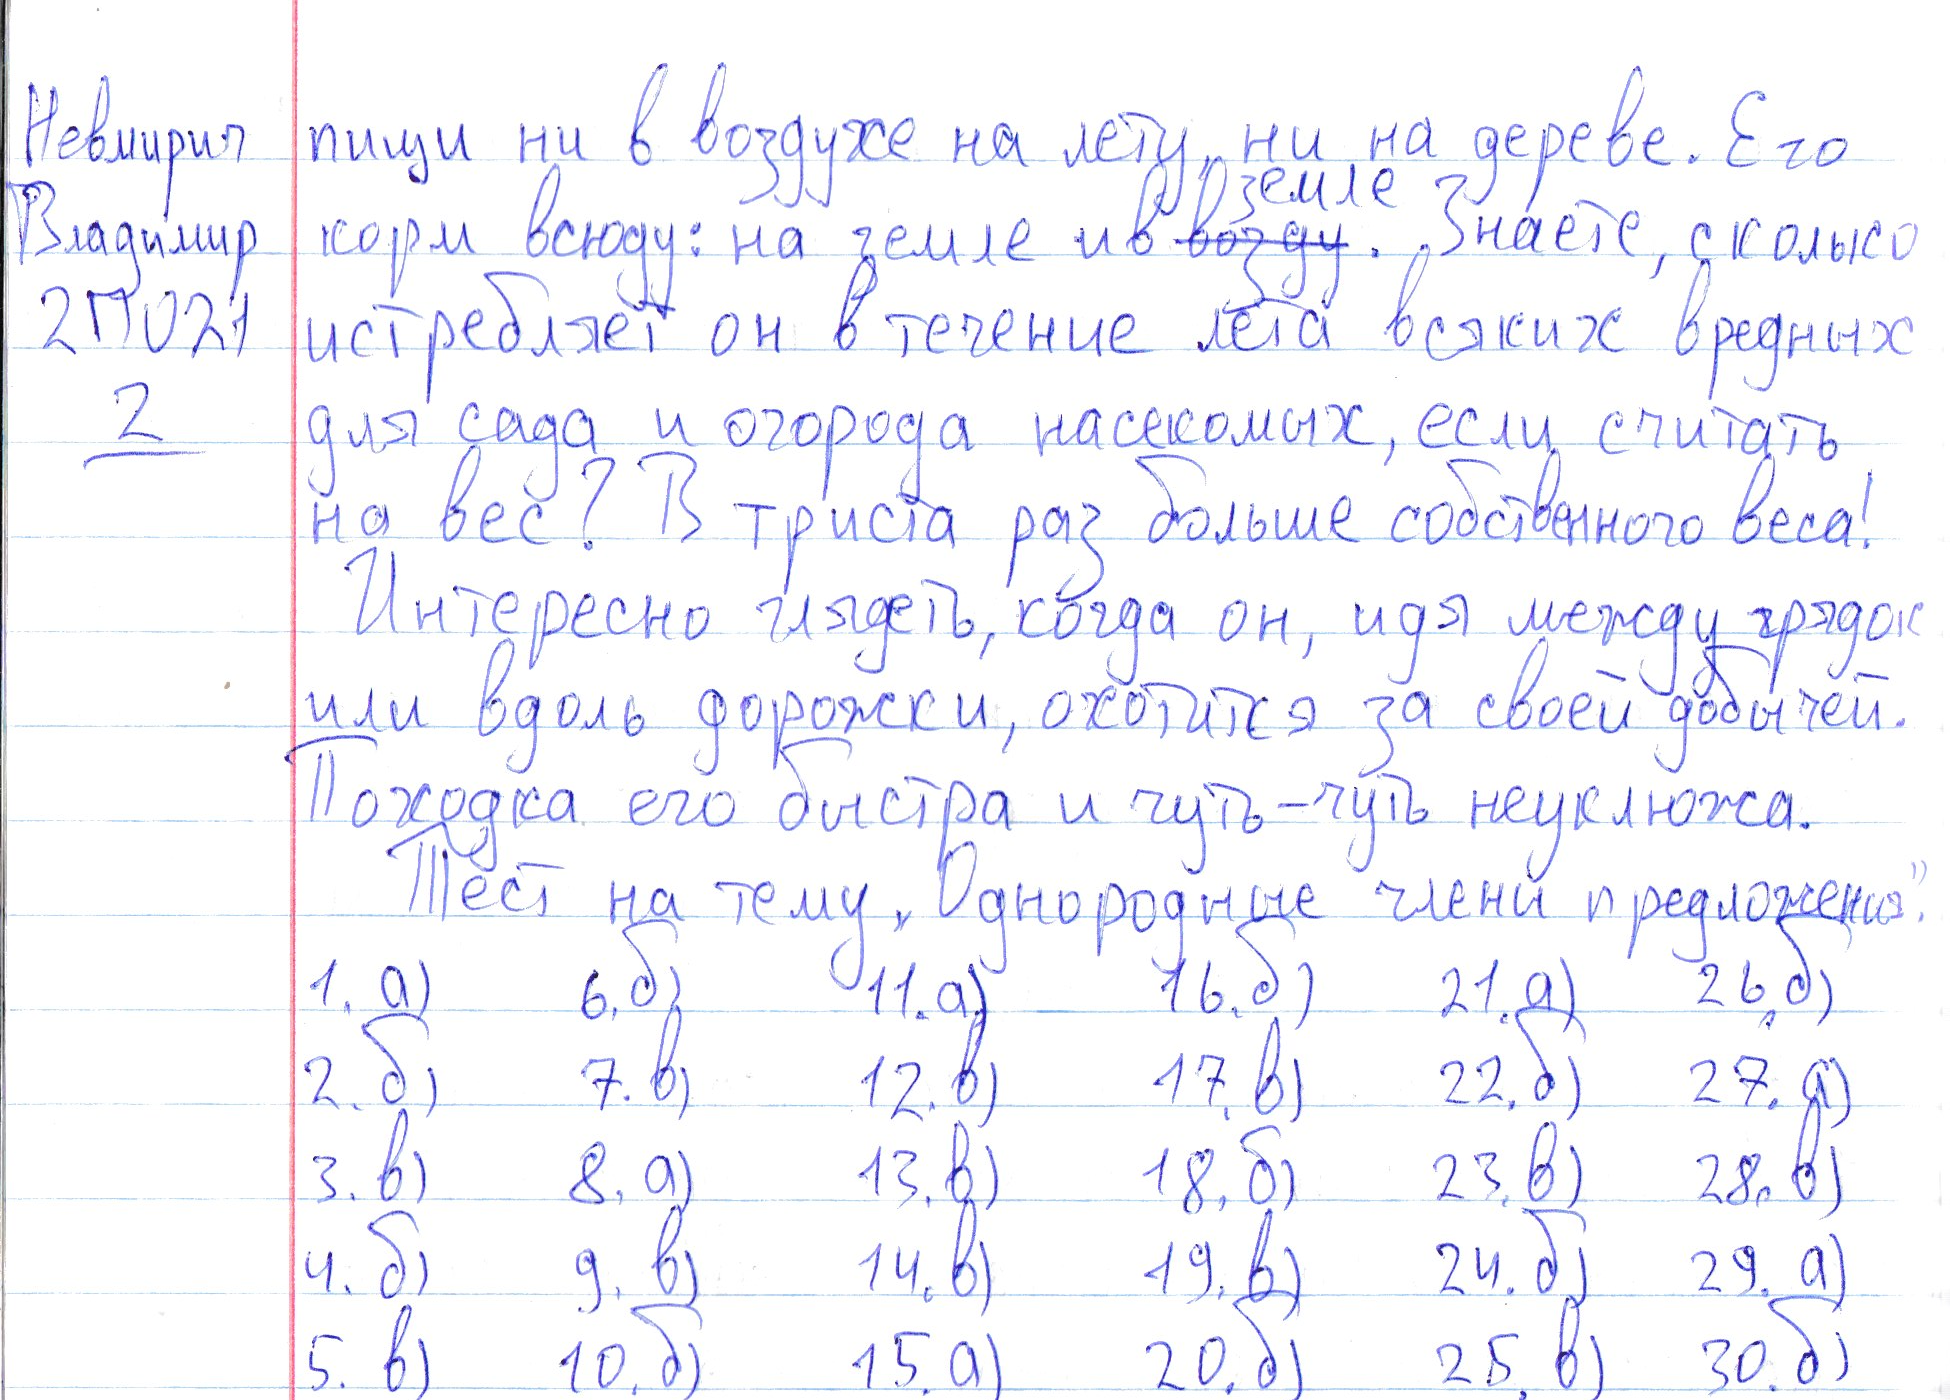 Невмирич
Владимир
2ПО21
2
пищи ни в воздухе на лету, ни на дереве. Его
земле
корм всюду: на земле и в возду. Знаете, сколько
истребляет он в течение лета всяких вредных
для сада и огорода насекомых, если считать
на вес? В триста раз больше собственного веса!
Интересно глядеть, когда он, идя между грядок
или вдоль дорожки, охотится за своей добычей.
Походка его быстра и чуть-чуть неуклюжа.
Тест на тему „Однородные члены предложения”.
1. а) 6. б) 11. а) 16. б) 21. а) 26. б)
2. б) 7. в) 12. в) 17. в) 22. б) 27. а)
3. в) 8. а) 13. в) 18. б) 23. в) 28. в)
4. б) 9. в) 14. в) 19. в) 24. б) 29. а)
5. в) 10. б) 15. а) 20. б) 25. в) 30. б)